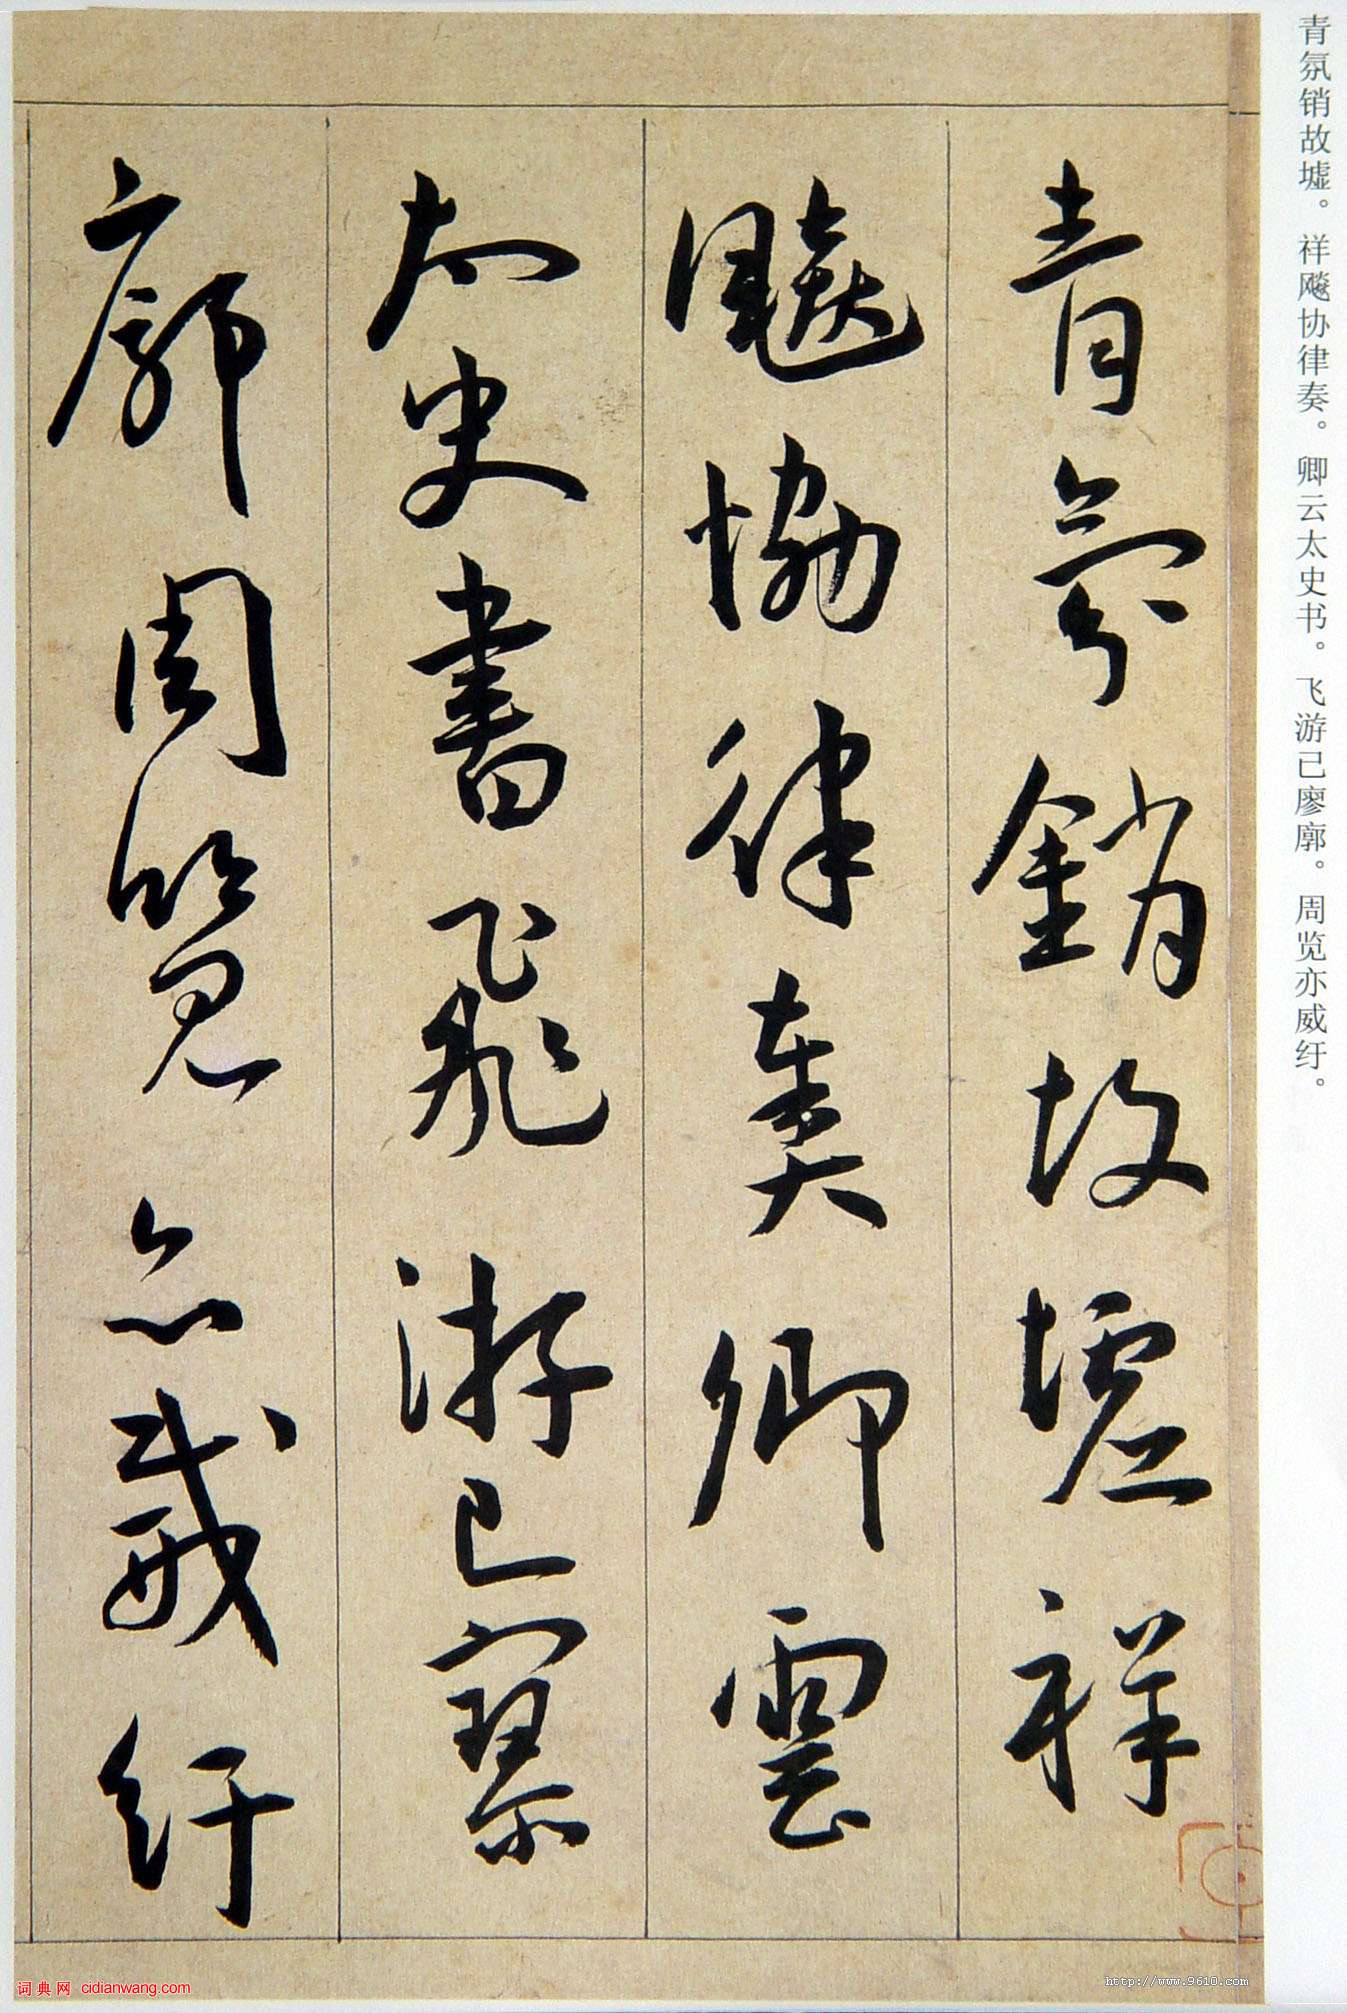 青氛销故墟。祥飚协律奏。卿云太史书。飞游已廖廓。周览亦威纡。
青氛銷故墟祥
飈協律奏卿雲
太史書飛游已寥
廓周覽亦威紆
词典网 cidianwang.com
http://www.9610.com